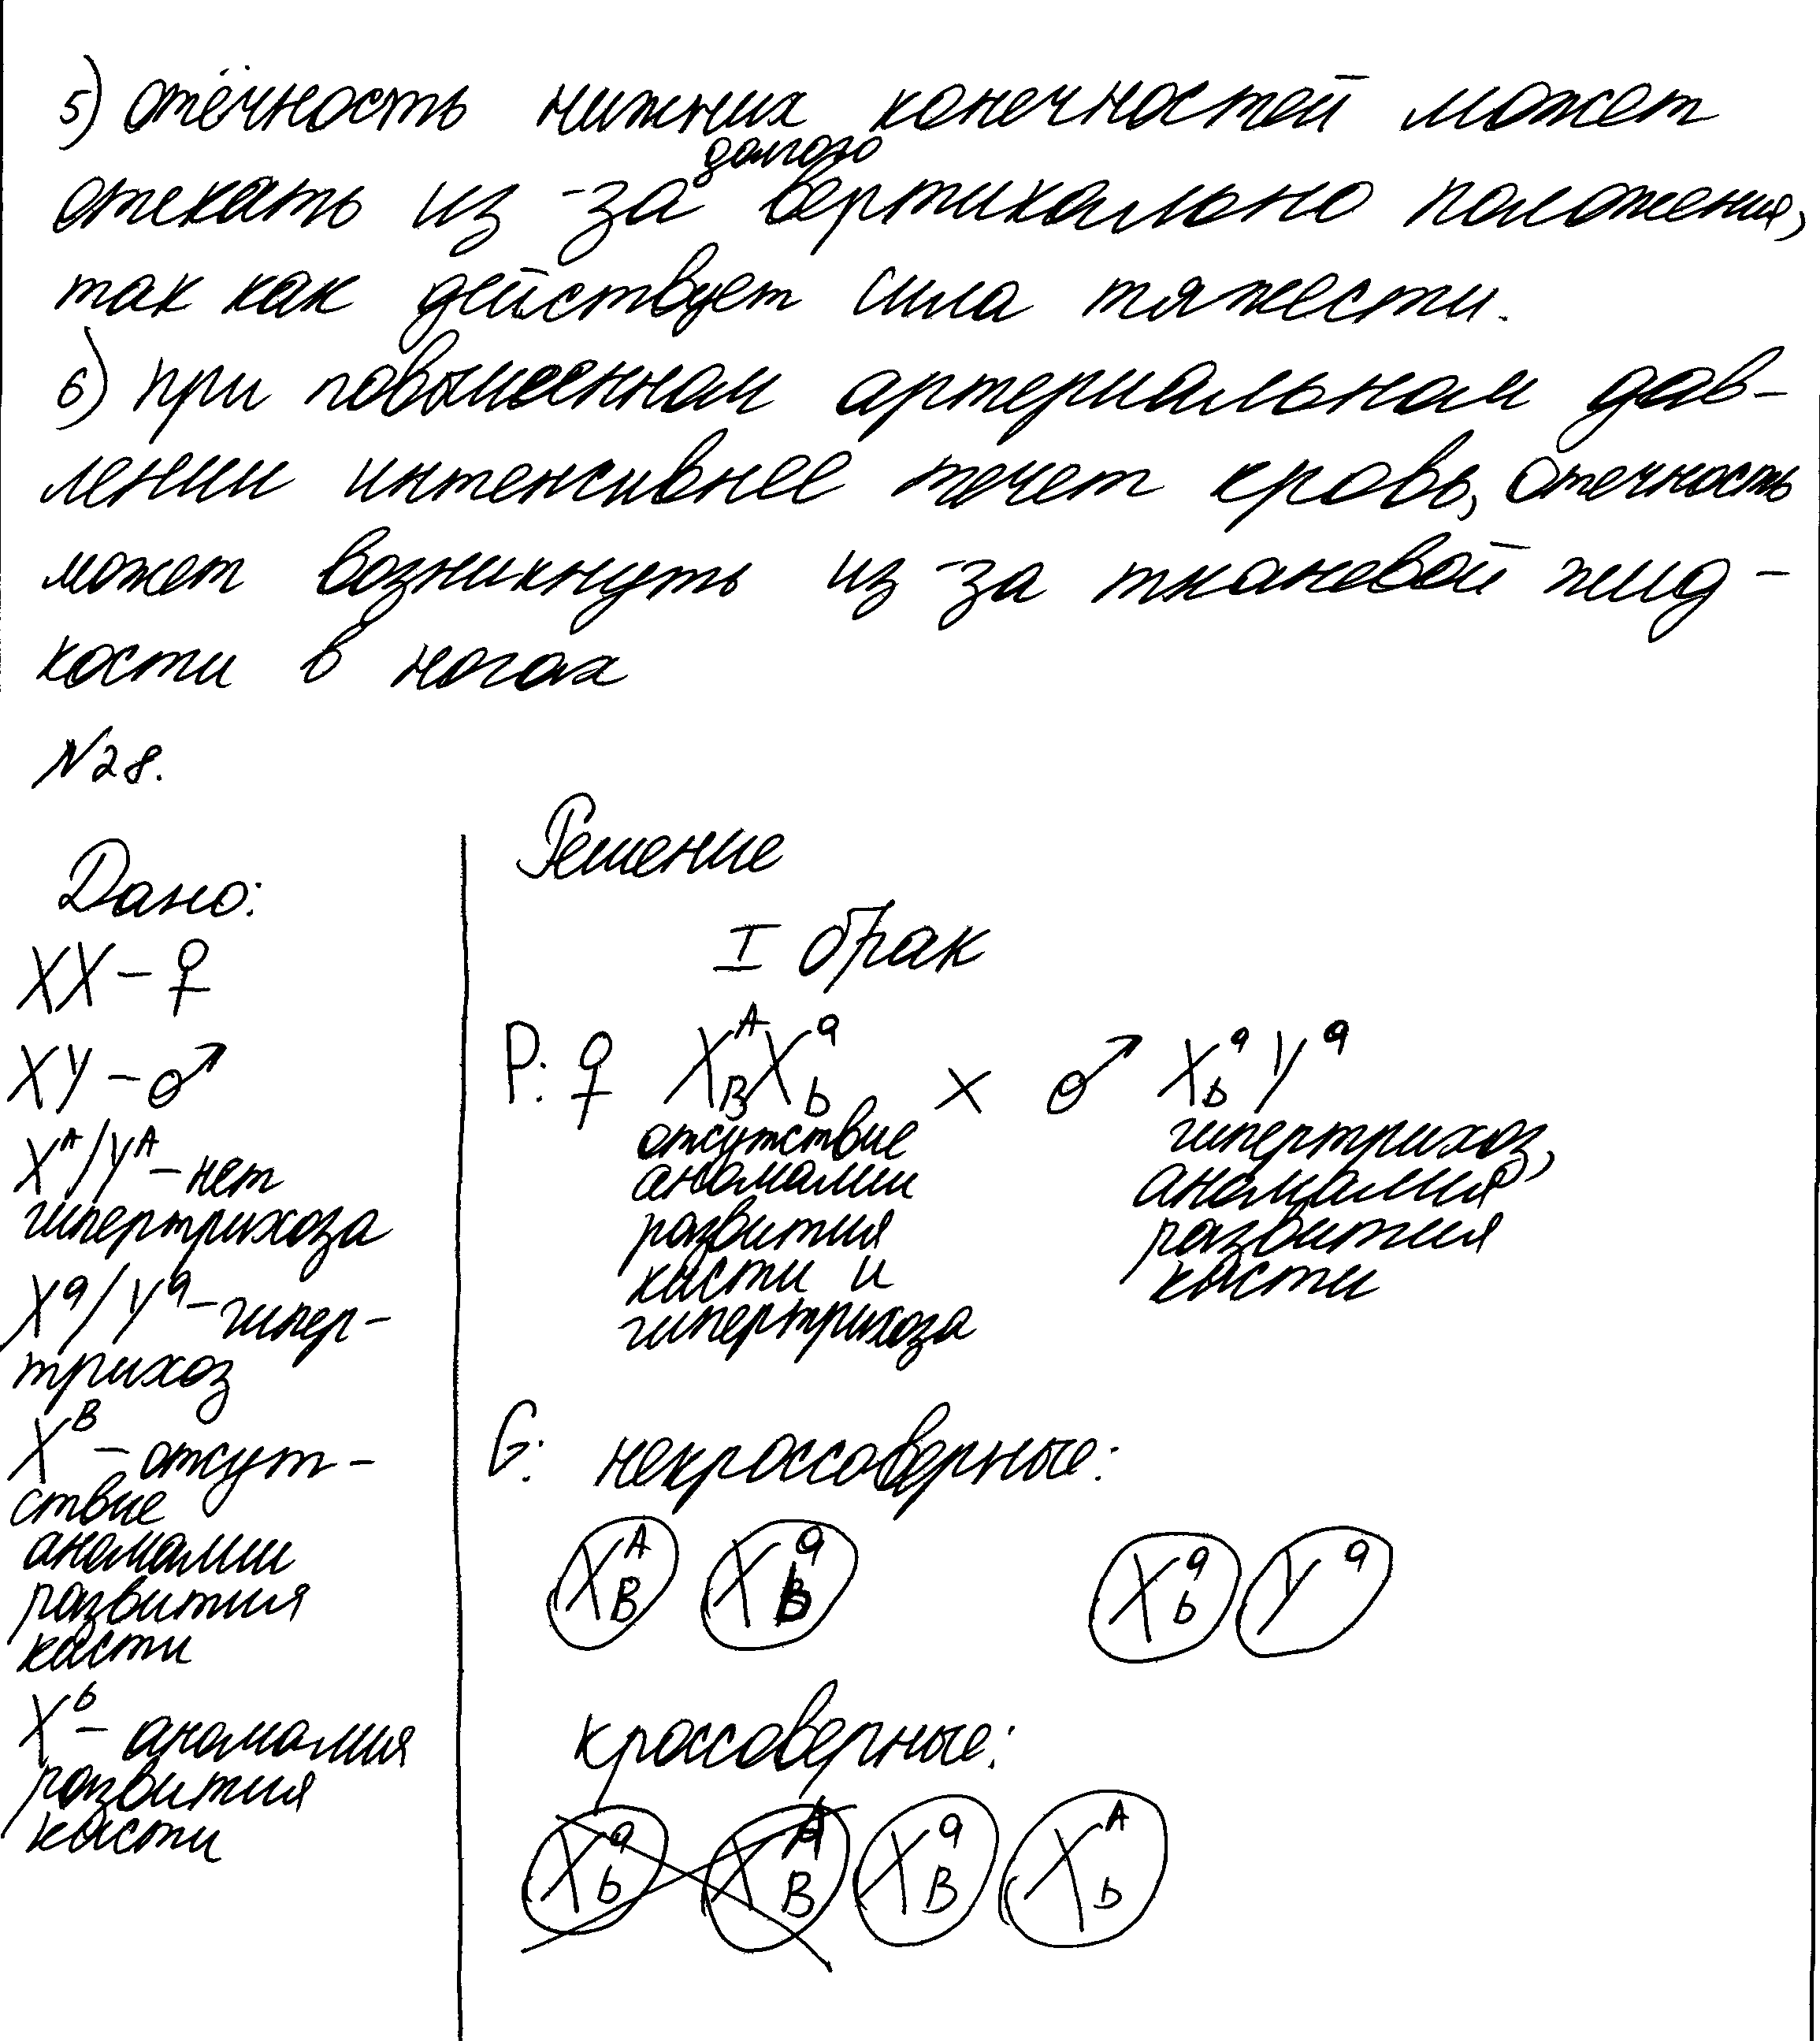 5) отёчность нижних конечностей может
долгого
отекать из-за вертикально положения,
так как действует сила тяжести.
6) при повышенном артериальном дав-
лении интенсивнее течет кровь, отечность
может возникнуть из-за тканевой жид-
кости в ногах
№28.
Дано:
XX – ♀
XY – ♂
X^A/Y^A – нет
гипертрихоза
X^a/Y^a – гипер-
трихоз
X^B – отсут-
ствие
аномалии
развития
кисти
X^b – аномалия
развития
кисти
Решение
I брак
P: ♀ X^A_B X^a_b × ♂ X^a_b Y^a
отсутствие
аномалии
развития
кисти и
гипертрихоза
гипертрихоз,
аномалия
развития
кисти
G: некроссоверные:
X^A_B X^a_b X^a_b Y^a
кроссоверные:
X^a_b X^A_B X^a_B X^A_b